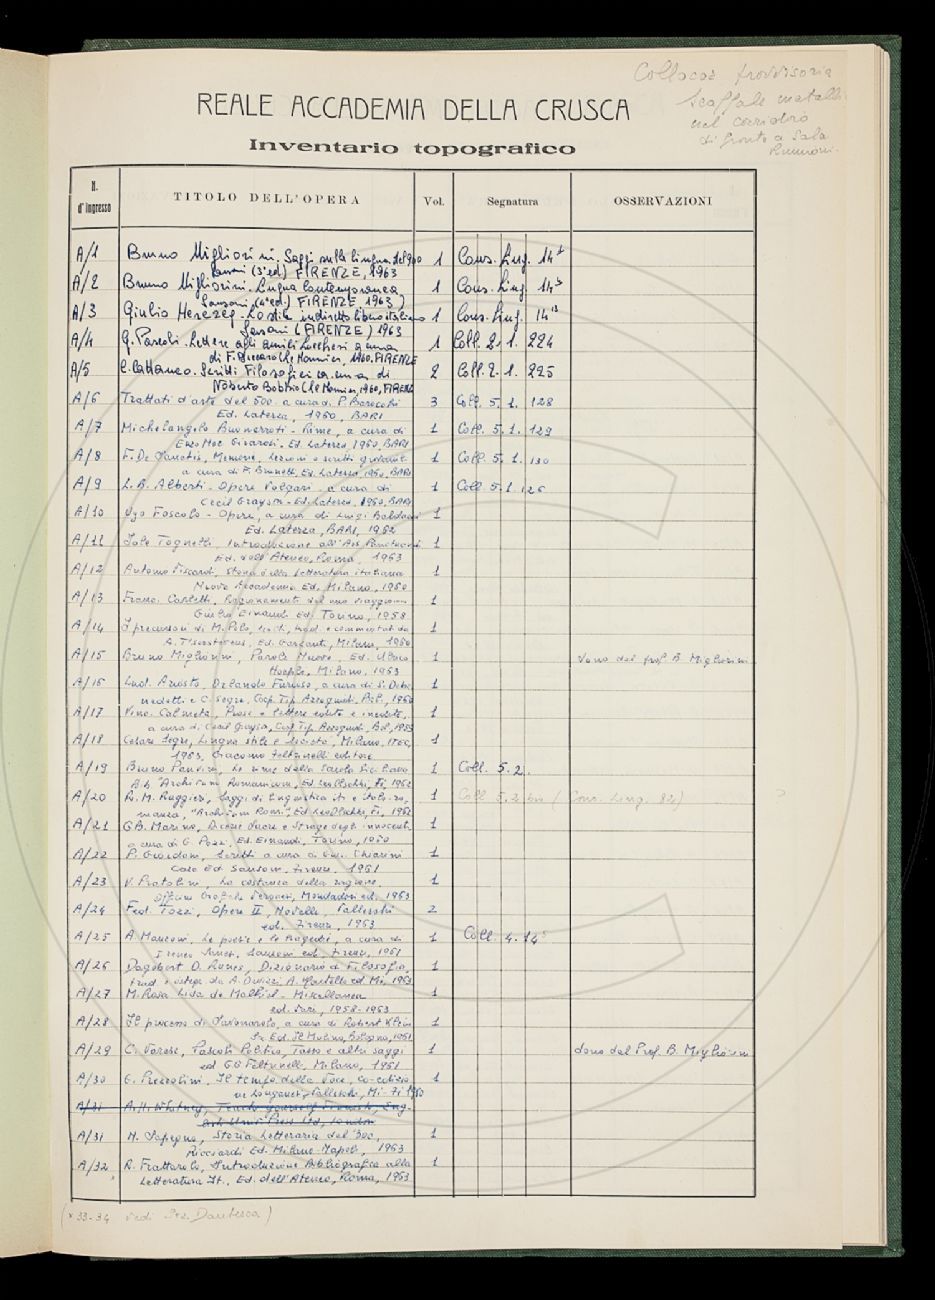 Collocaz. provvisoria
scaffale metall.
nel corridoio
di fronte a Sala
REALE ACCADEMIA DELLA CRUSCA
Inventario topografico
N. d'Ingresso TITOLO DELL'OPERA Vol. Segnatura OSSERVAZIONI
A/1 Bruno Migliorini. Saggi sulla lingua del 900 1 Cons. Ling. 14
Sansoni (3ª ed) FIRENZE, 1963
A/2 Bruno Migliorini. Lingua Contemporanea 1 Cons. Ling. 14
Sansoni, (4ª ed.) FIRENZE, 1963)
A/3 Giulio Herczeg - Lo stile indiretto libero italiano 1 Cons. Ling. 14
Sansoni (FIRENZE) 1963
A/4 G. Pascoli. Lettere agli amici Lucchesi a cura 1 Coll. 2. 1. 224
di F. Del Beccaro (Le Monnier, 1960, FIRENZE
A/5 C. Cattaneo. Scritti Filosofici a cura di 2 Coll. 2. 1. 225
Norberto Bobbio (Le Monnier, 1960, FIRENZE
A/6 Trattati d'arte del 500. a cura di P. Barocchi 3 Coll. 5. 1. 128
Ed. Laterza, 1960, BARI
A/7 Michelangelo Buonarroti - Rime, a cura di 1 Coll. 5. 1. 129
Enzo Noe Girardi. Ed. Laterza, 1960, BARI
A/8 F. De Sanctis, Memorie, Lezioni e scritti giovanili 1 Coll. 5. 1. 130
a cura di F. Brunetti, Ed. Laterza, 1960, BARI
A/9 L. B. Alberti - Opere Volgari - a cura di 1 Coll. 5. 1. 126
Cecil Grayson - Ed. Laterza, 1960, BARI
A/10 Ugo Foscolo - Opere, a cura di Luigi Baldacci 1
Ed. Laterza, BARI, 1962
A/11 Jole Tognelli, Introduzione all'Ars Punctandi 1
Ed. dell'Ateneo, Roma, 1963
A/12 Antonio Viscardi, Storia della Letteratura italiana 1
Nuova Accademia Ed. Milano, 1960
A/13 Franc. Carletti, Ragionamenti del mio viaggio 1
Giulio Einaudi Ed. Torino, 1958
A/14 I precursori di M. Polo, testi, trad. e commentati da 1
Ed. Garzanti, Milano, 1960
A/15 Bruno Migliorini, Parole Nuove, Ed. Ulrico 1 Dono del prof. B. Migliorini
Hoepli, Milano, 1963
A/16 Lud. Ariosto, Orlando Furioso, a cura di S. Debe- 1
nedetti e C. Segre, Coop. Tip. Azzoguidi, Bol., 1960
A/17 Vinc. Calmeta, Prose e lettere edite e inedite, 1
a cura di Cecil Grayson, Coop. Tip. Azzoguidi, Bol., 1959
A/18 Cesare Segre, Lingua stile e società, Milano, ITEC, 1
1963, Giacomo Feltrinelli editore
A/19 Bruno Panvini, Le rime della Scuola Siciliana 1 Coll. 5. 2.
Bib. "Archivum Romanicum, Ed. Leo Olschki, Fi, 1962
A/20 R. M. Ruggieri, Saggi di linguistica it. e italo-ro- 1 Coll. 5. 2. bis (Cons. Ling. 82) ?
manza, "Archivum Rom.", Ed. Leo Olschki, Fi, 1962
A/21 GB. Marino, Dicerie Sacre e Strage degli innocenti 1
a cura di G. Pozzi, Ed. Einaudi, Torino, 1960
A/22 P. Giordani, Scritti a cura di Giu. Chiarini 1
Casa Ed. Sansoni, Firenze, 1961
A/23 V. Pratolini, La costanza della ragione, 1
Officine Grafiche Veronesi, Mondadori ed. 1963
A/24 Fed. Tozzi, Opere II, Novelle, Vallecchi 2
ed. Firenze, 1963
A/25 A Manzoni, Le poesie e le tragedie, a cura di 1 Coll. 4. 14
Ireneo Sanesi, Sansoni ed. Firenze, 1961
A/26 Dagobert D. Runes, Dizionario di Filosofia, 1
trad. e integr. da A. Devizzi, A. Martello ed. Mi, 1963
A/27 M. Rosa Lida de Malkiel - Miscellanea 1
ed. vari, 1958-1963
A/28 Il processo di Savonarola, a cura di Robert Klein 1
Ed. Il Mulino, Bologna, 1961
A/29 C. Varese, Pascoli Politico, Tasso e altri saggi 1 dono del Prof. B. Migliorini
ed GG Feltrinelli, Milano, 1961
A/30 G. Prezzolini, Il tempo della Voce, co-edizio- 1
ne Longanesi, Vallecchi, Mi-Fi 1960
A/31 A.H. Whitney, Teach yourself Finnish, Eng-
lish Univ. Press Ltd, London
A/31 N. Sapegno, Storia Letteraria del '300, 1
Ricciardi Ed. Milano-Napoli, 1963
A/32 R. Frattarolo, Introduzione Bibliografica alla 1
Letteratura It., Ed. dell'Ateneo, Roma, 1963
(* 33-34 vedi Sez. Dantesca)